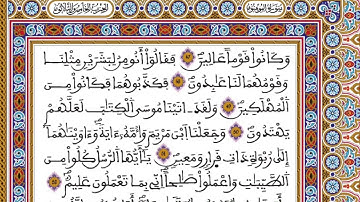 وَكَانُوا۟ قَوْمًا عَالِينَ ۝ فَقَالُوٓا۟ أَنُومِنُ لِبَشَرَيْنِ مِثْلِنَا
وَقَوْمُهُمَا لَنَا عَٰبِدُونَ ۝ فَكَذَّبُوهُمَا فَكَانُوا۟ مِنَ
ٱلْمُهْلَكِينَ ۝ وَلَقَدَ اتَيْنَا مُوسَى ٱلْكِتَٰبَ لَعَلَّهُمْ
يَهْتَدُونَ ۝ وَجَعَلْنَا ٱبْنَ مَرْيَمَ وَأُمَّهُۥٓ ءَايَةً وَءَاوَيْنَٰهُمَآ
إِلَىٰ رُبْوَةٍ ذَاتِ قَرَارٍ وَمَعِينٍ ۝ يَٰٓأَيُّهَا ٱلرُّسُلُ كُلُوا۟ مِنَ
ٱلطَّيِّبَٰتِ وَٱعْمَلُوا۟ صَٰلِحًا اِنِّى بِمَا تَعْمَلُونَ عَلِيمٌ ۝